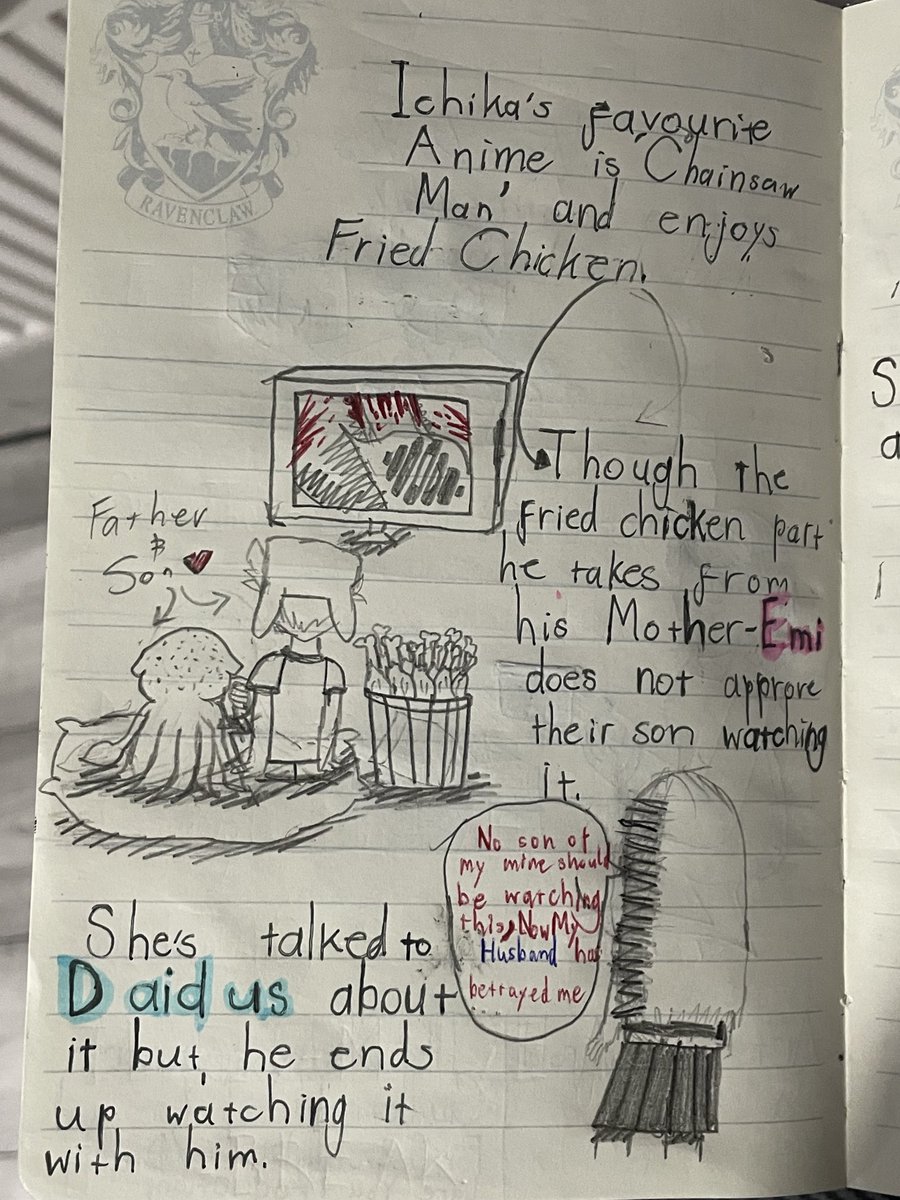 RAVENCLAW
Ichika's favourite
Anime is 'Chainsaw
Man' and enjoys
Fried Chicken.
Though the
fried chicken part
he takes from
his Mother-Emi
does not approve
their son watching
it.
Father
&
Son
No son of
my mine should
be watching
this, Now My
Husband has
betrayed me
She's talked to
Daidus about
it but, he ends
up watching it
with him.
S
a